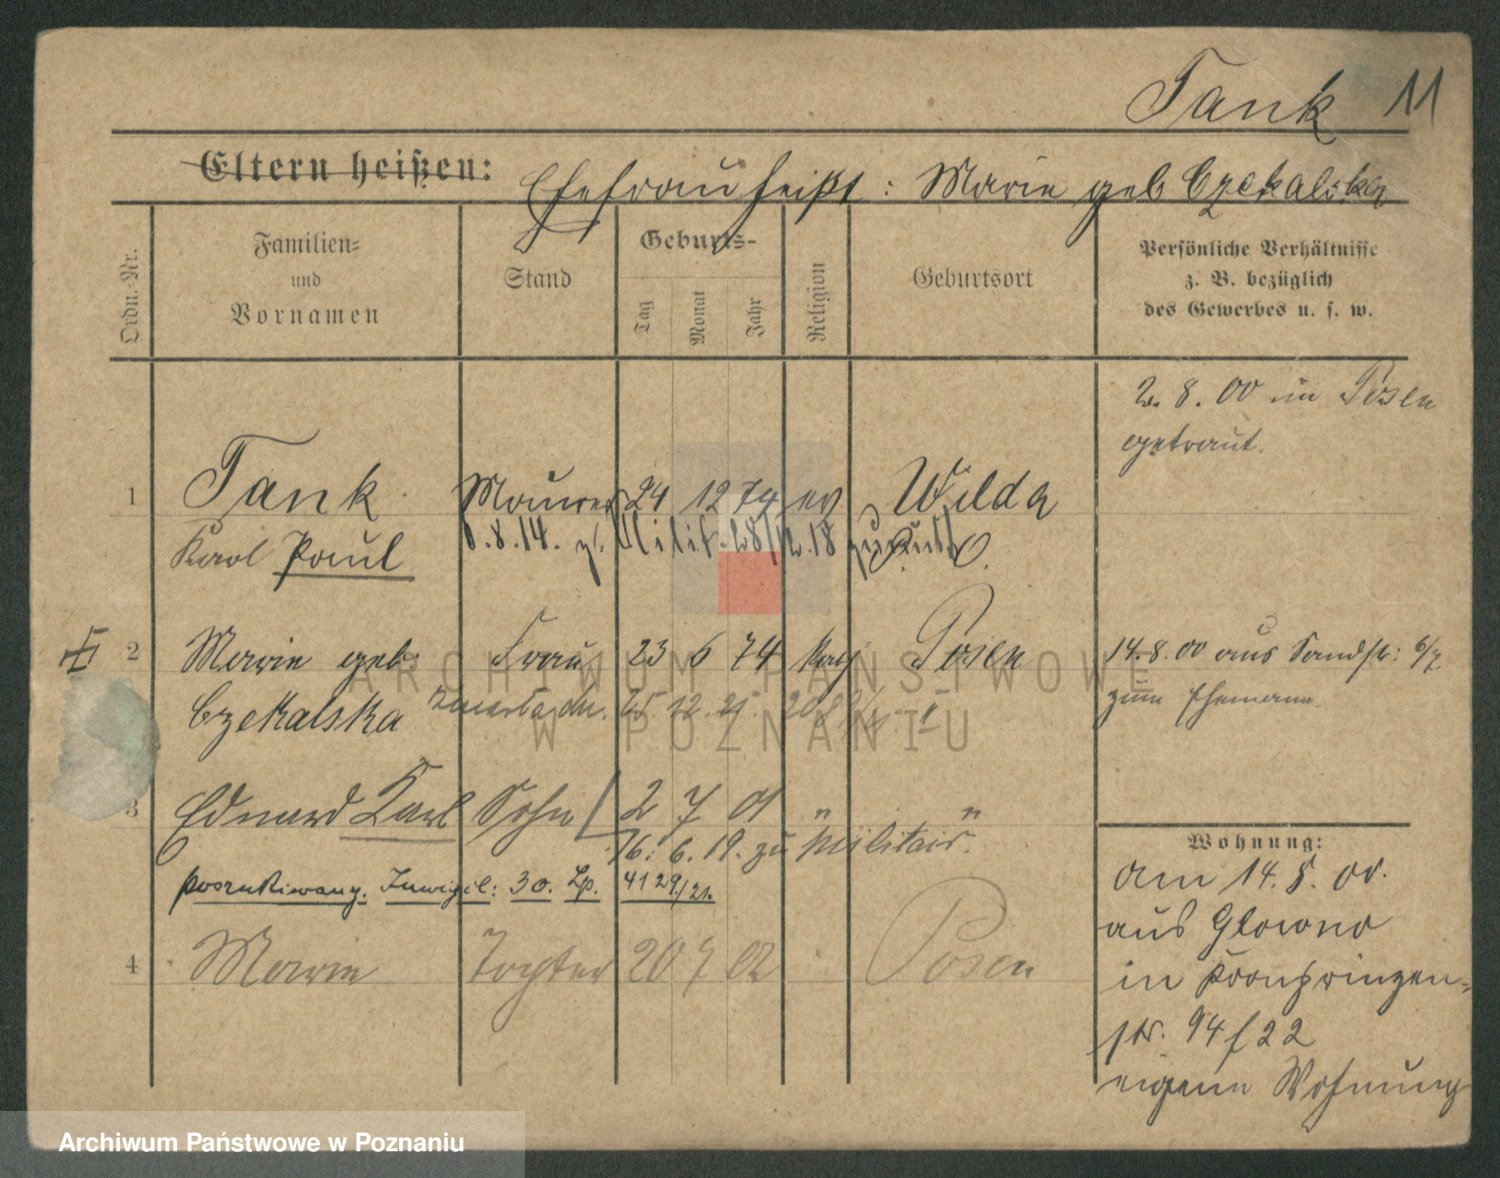 Tank 11
Eltern heißen: Ehefrau heißt: Marie geb Czekalska
Ordn.-Nr.
Familien-
und
Vornamen
Stand
Geburts-
Tag
Monat
Jahr
Religion
Geburtsort
Persönliche Verhältnisse
z. B. bezüglich
des Gewerbes u. s. w.
2. 8. 00 in Posen
getraut.
1 Tank Maurer 24 12 74 ev Wilda
8.8.14. z. Milit. 28/12.18 zurück
Karl Paul
2 Marie geb. Frau 23 6 74 kath Posen
14.8.00 aus Sandstr: 6/7
Czekalska
zum Ehemann
3 Eduard Karl Sohn 2 7 01 " "
16. 6. 19. zu Militair.
poszukiwany. Inwigil: 30. Lp. 4129/21.
4 Marie Tochter 20 7 02 Posen
Wohnung:
am 14. 8. 00.
aus Glowno
in Kronprinzen-
str. 94 f 22
eigene Wohnung
ARCHIWUM PAŃSTWOWE
W POZNANIU
Archiwum Państwowe w Poznaniu